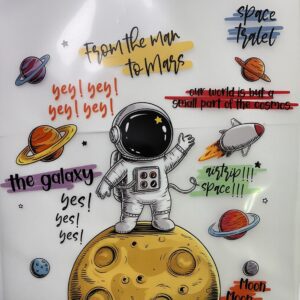 space
tralet
From the man
to Mars
yey! yey!
yey! yey!
our world is but a
small part of the cosmos.
airtrip!!!
space!!!
the galaxy
yes!
yes!
yes!
Moon
Moon